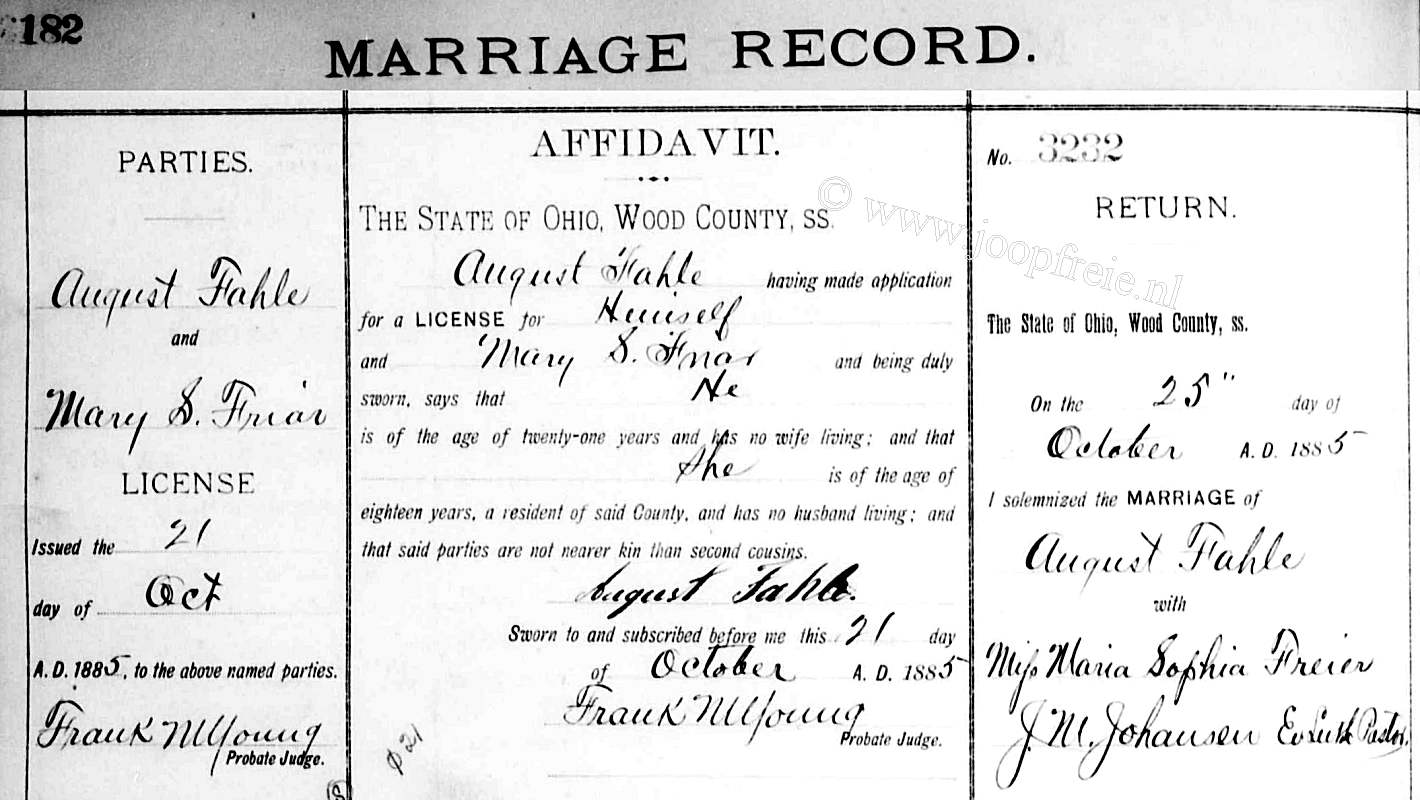 182
MARRIAGE RECORD.
PARTIES.
August Fahle
and
Mary S. Friar
LICENSE
Issued the 21
day of Oct
A. D. 1885, to the above named parties.
Frank M Young
Probate Judge.
AFFIDAVIT.
THE STATE OF OHIO, WOOD COUNTY, SS.
August Fahle having made application
for a LICENSE for Himself
and Mary S. Friar and being duly
sworn, says that He
is of the age of twenty-one years and has no wife living; and that
she is of the age of
eighteen years, a resident of said County, and has no husband living; and
that said parties are not nearer kin than second cousins.
August Fahle.
Sworn to and subscribed before me this 21 day
of October A. D. 1885
Frank M Young
Probate Judge.
p 21
No. 3232
RETURN.
The State of Ohio, Wood County, ss.
On the 25" day of
October A. D. 1885
I solemnized the MARRIAGE of
August Fahle
with
Miss Maria Sophia Freier
J. M. Johansen Ev Luth Pastor.
© www.joopfreie.nl